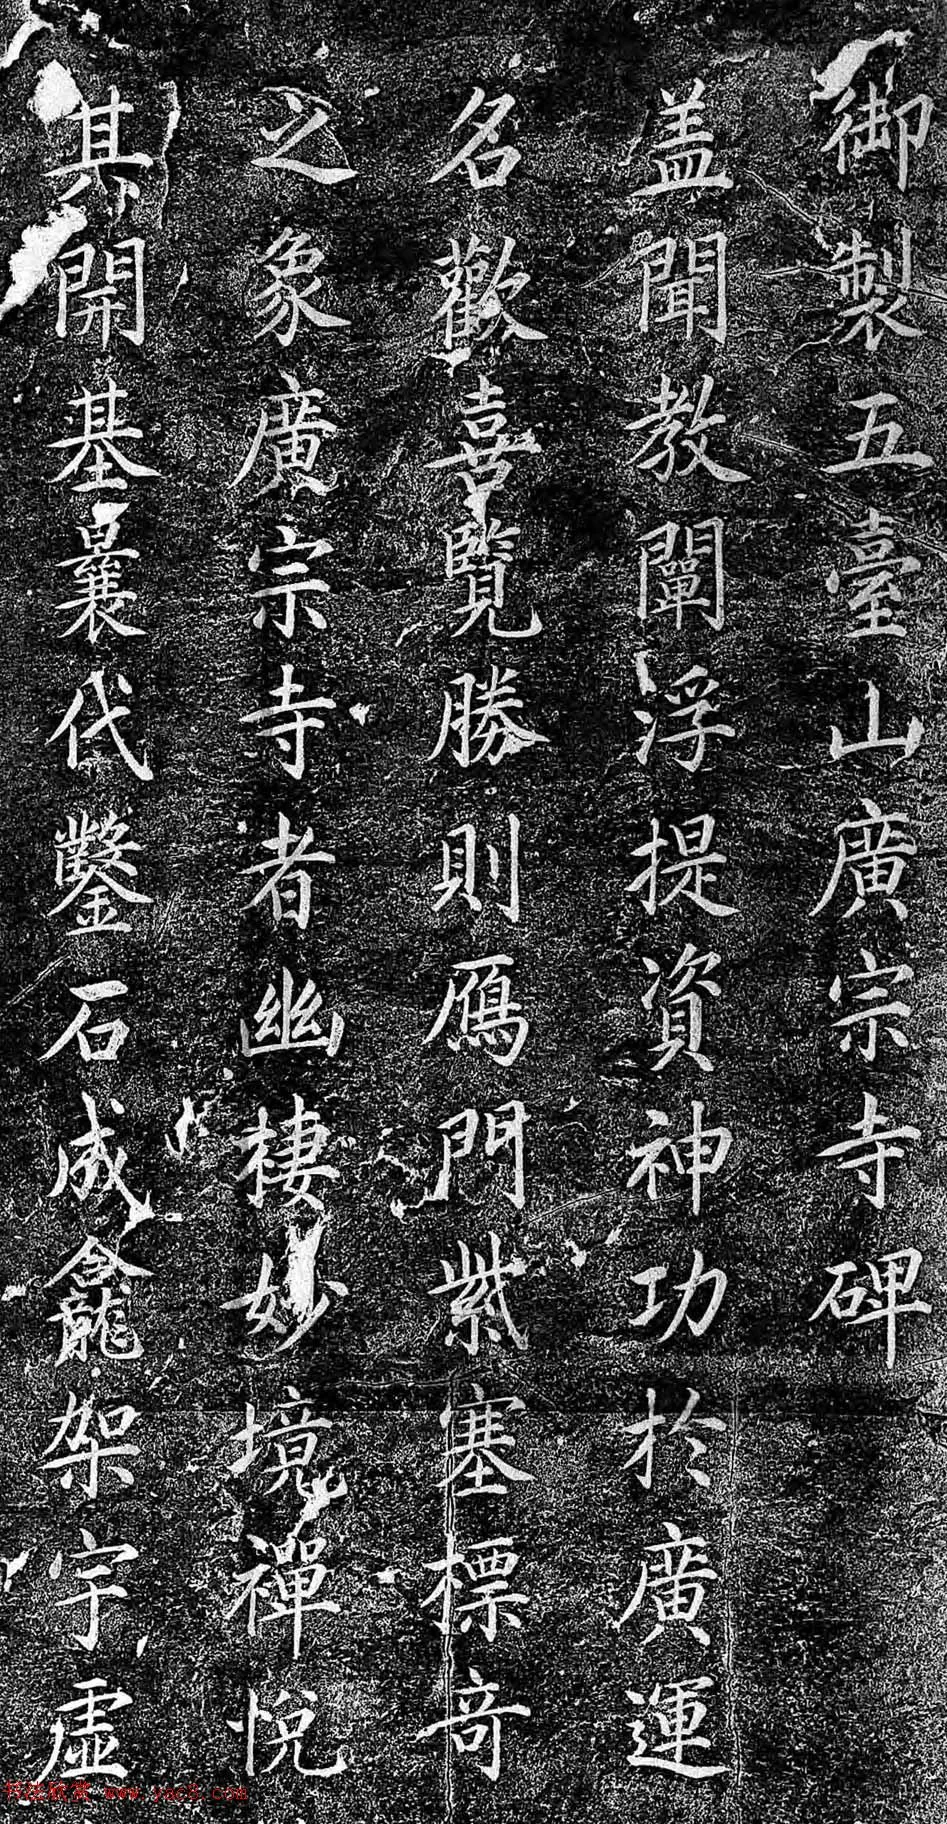 御製五臺山廣宗寺碑
盖聞教闡浮提資神功於廣運
名歡喜覽勝則鴈門紫塞標奇
之象廣宗寺者幽棲妙境禪悅
其開基曩代鑿石成龕架宇虛
书法欣赏 www.yac8.com